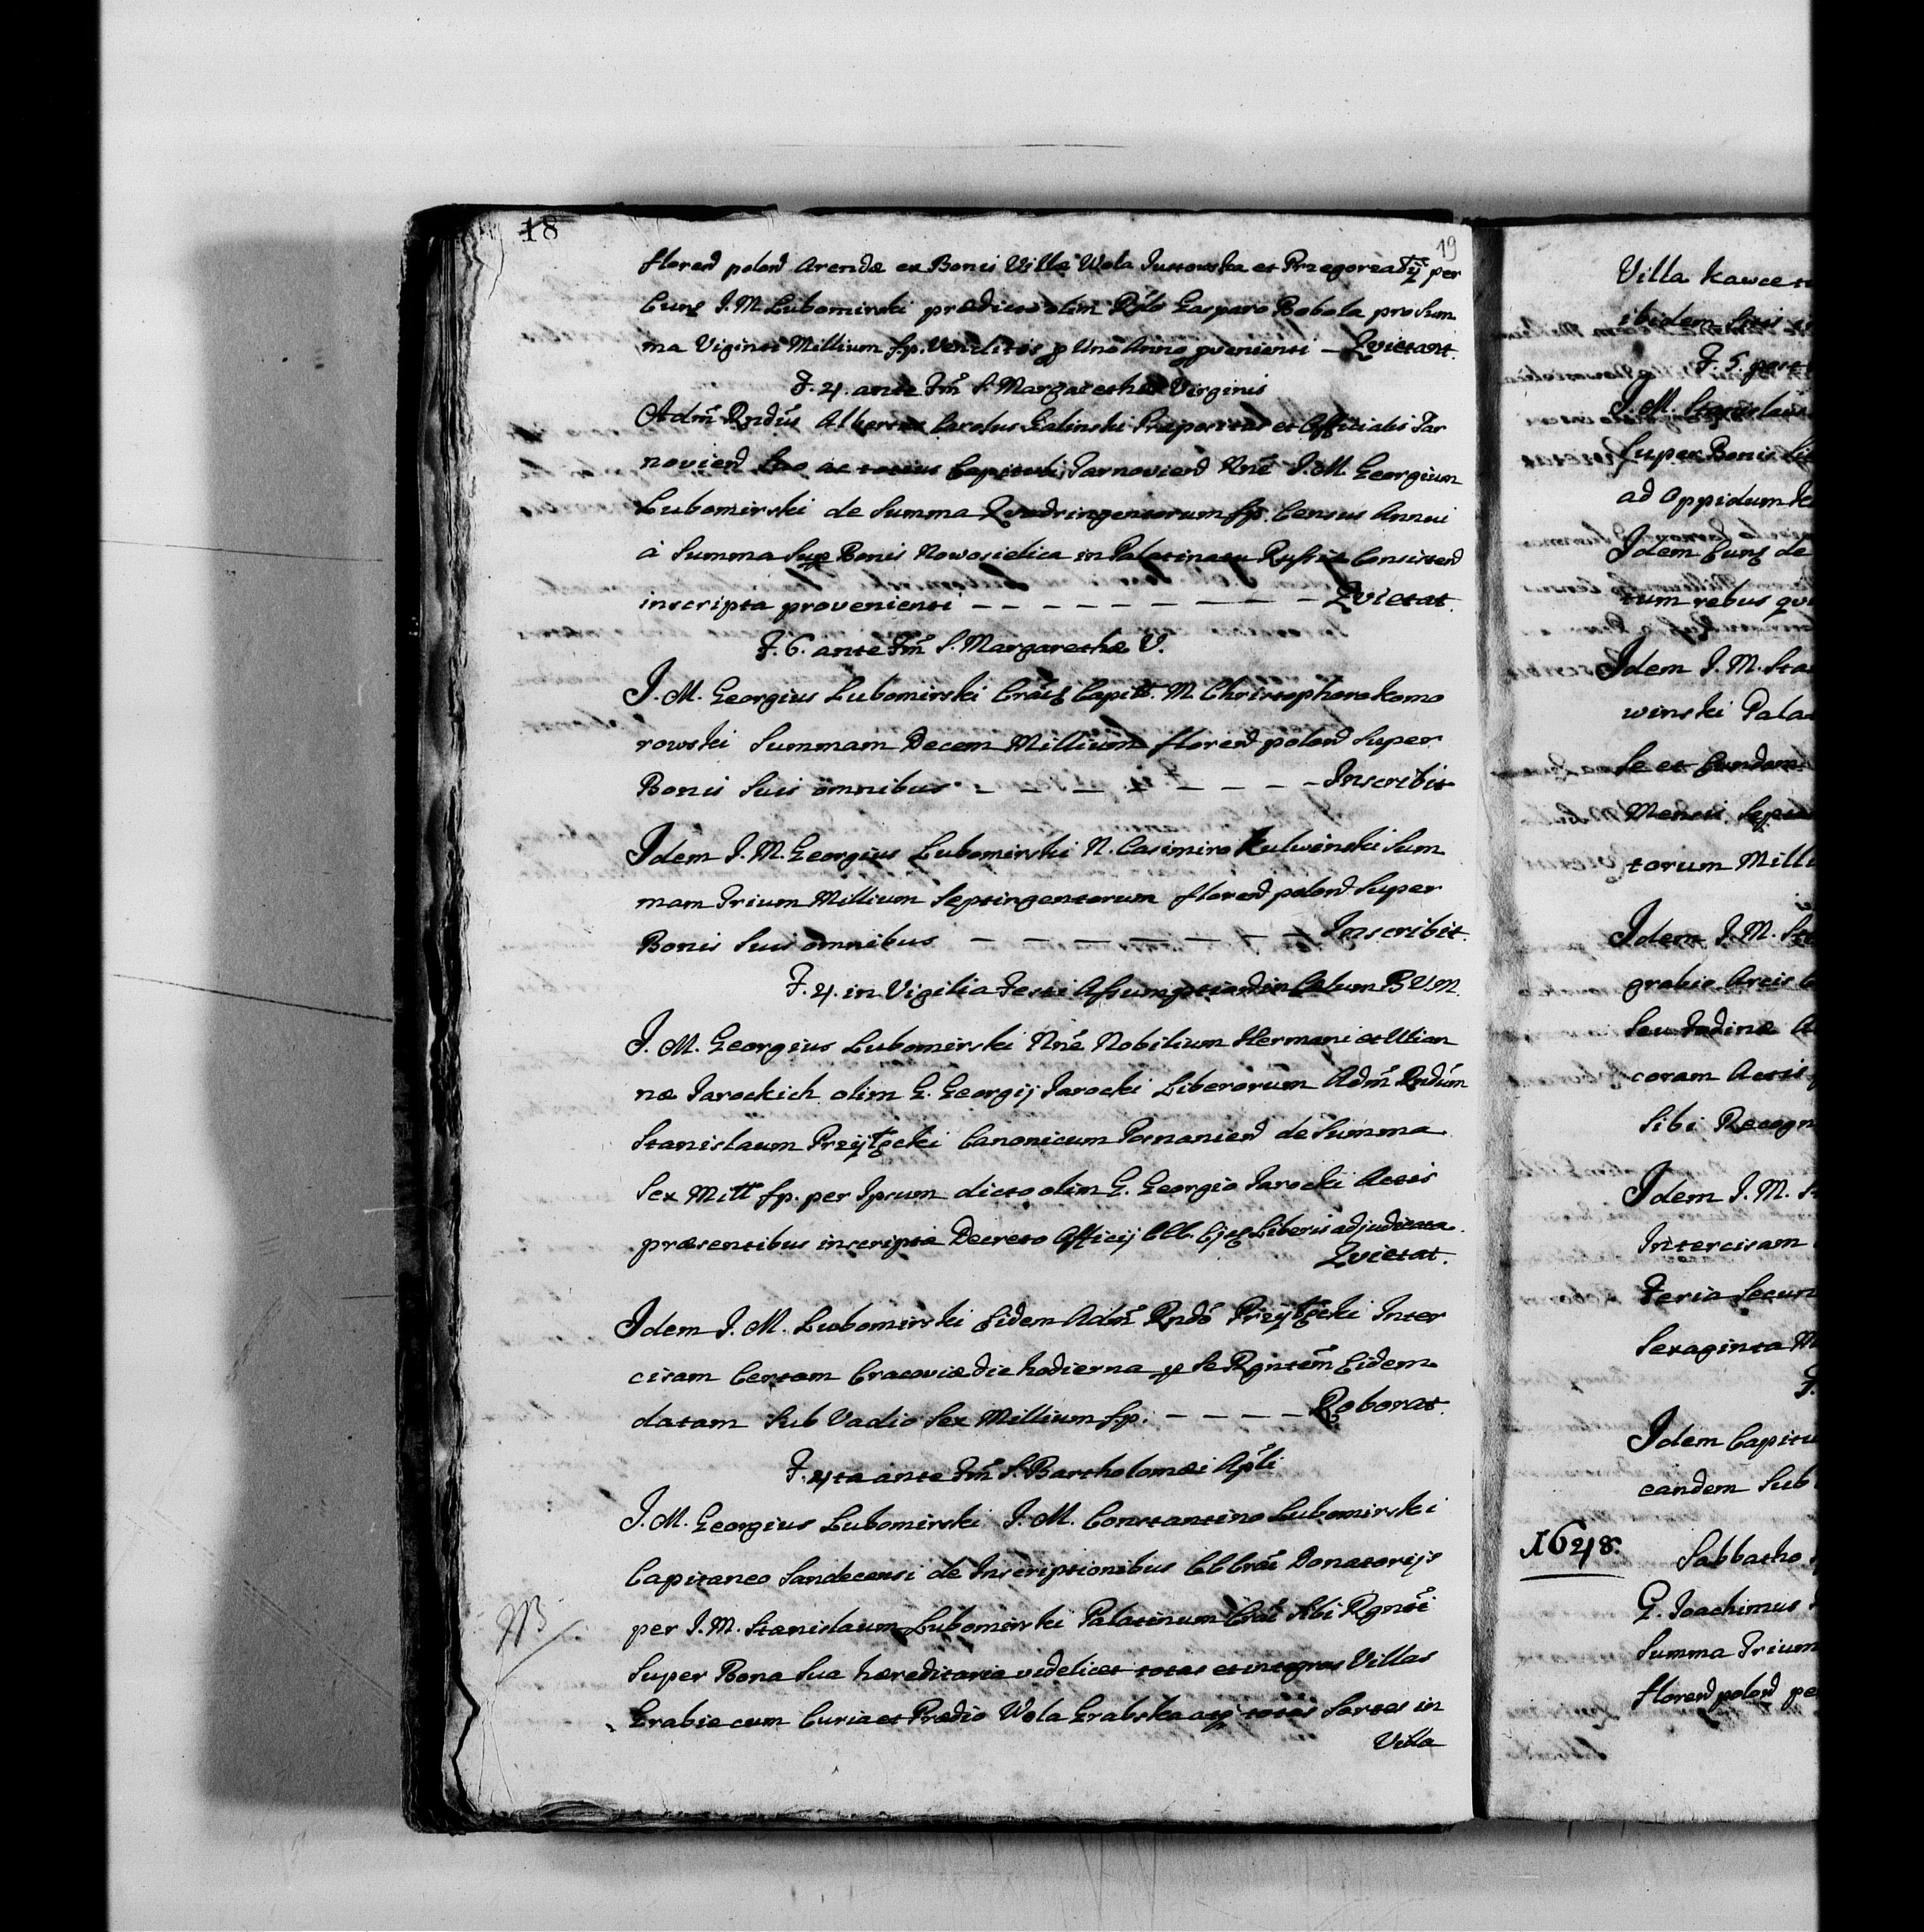 18
19
florend polond Arendæ ex Bonis Villæ Wola Justowska et Przegorzaltij per
Eund J. M. Lubomirski prædicto olim Gasparo Bobola pro Sum
ma Viginti Millium fp. Venditis p Uno Anno pvenienti – Qvietant.
F. 4. ante Fm̃ S. Margarethæ Virginis
Adm̃ Rndus Albertus Carolus Galinski Præpositus et Officialis Tar
noviend Suo ac totius Capituli Tarnoviend Nnẽ J. M. Georgium
Lubomirski de Summa Qvadringentorum fp. Census Annui
à Summa Sup Bonis Nowosielica in Palatinatu Russiæ Consistend
inscripta provenienti – – – – – – – – – Qvietat.
F. 6. ante Fm̃ S. Margarethæ V.
J. M. Georgius Lubomirski Capits. M. Christophoro Komo
rowski Summam Decem Millium florend polond Super
Bonis Suis omnibus – – – – – – – – Inscribit
Idem J. M. Georgius Lubomirski N. Casimiro Kulwinski Sum
mam Trium Millium Septingentorum florend polond Super
Bonis Suis omnibus – – – – – – – Inscribit.
F. 4. in Vigilia Festi Assumptiond in Cælum B V. M.
J. M. Georgius Lubomirski Nnẽ Nobilium Hermani et Ulian
næ Jarockich olim G. Georgij Jarocki Liberorum Adm̃ Rndũm
Stanislaum Canonicum Posnaniend de Summa
Sex Mill fp. per Ipsum dicto olim G. Georgio Jarocki Actis
præsentibus inscripta Decreto Officij Ejq Liberis adjudicata
Qvietat.
Idem J. M. Lubomirski Eidem Adm̃ Rndõ Inter
cisam Certam Cracoviæ die hodierna p Se Rgntẽm Eidem
datam Sub Vadio Sex Millium fp. – – – – Roborat.
F. 4ta ante Fm̃ S. Bartholomæi Apli
J. M. Georgius Lubomirski J. M. Constantino Lubomirski
Capitaneo Sandecensi de Inscriptionibus Donatorijs
per J. M. Stanislaum Lubomirski Palatinum Sibi
Super Bona Sua hæreditaria videlicet totas et integras Villas
Grabie cum Curia et Prædio Wola Grabska atq totas Sortes in
Villa
NB
Villa Kawce
ibidem
F. 5. post
J. M. Stanislaus
Super Bonis
ad Oppidum
Idem Eund de
tum rebus
Idem J. M. Sta
winski Pala
Se et Eundem
Mensis
torum Milli
Idem J. M.
grabio Arcis
Seu
coram Actis
Sibi Recogn
Idem J. M.
Intercisam
Feria Secun
Sexaginta M
F.
Idem Capitu
eandem Sub
1648.
Sabbatho
G. Joachimus
Summa Trium
florend polond pe